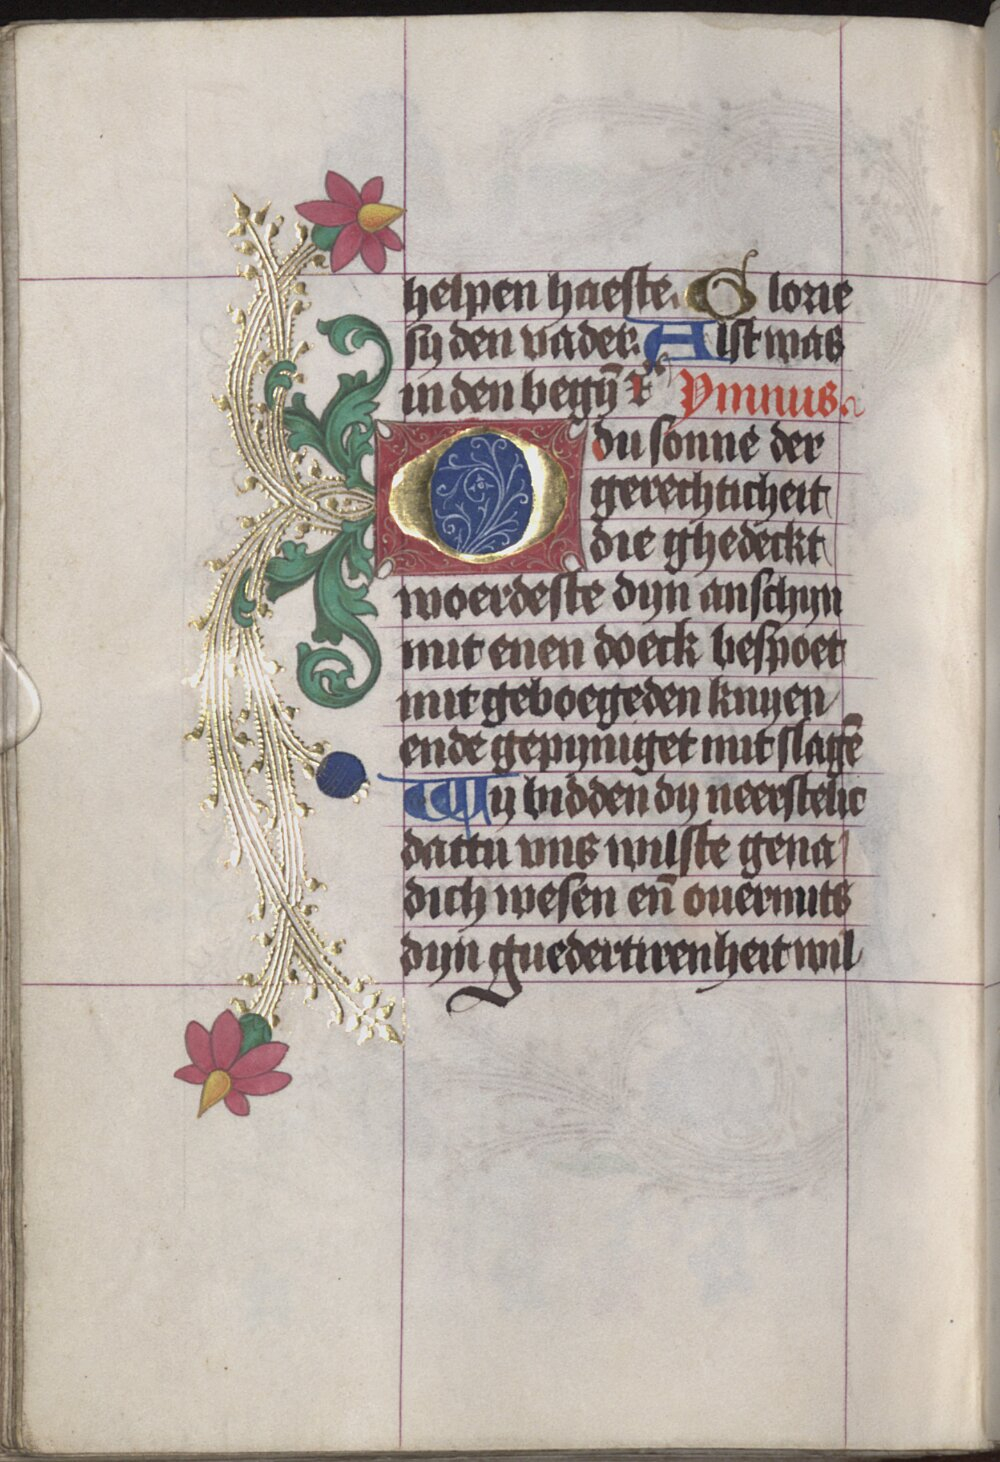 helpen haeste. Glorie
sy den vader. Alst was
in den begyn̄ rc Ymnus.
O du sonne der
gerechticheit
die ghedeckt
woerdeste dijn anschijn
mit enen doeck bespoet
mit geboegeden knyen
ende gepyniget mit slagē
Wy bidden dy neerstelic
dattu vns wilste gena
dich wesen en̄ ouermits
dijn guedertirenheit wil